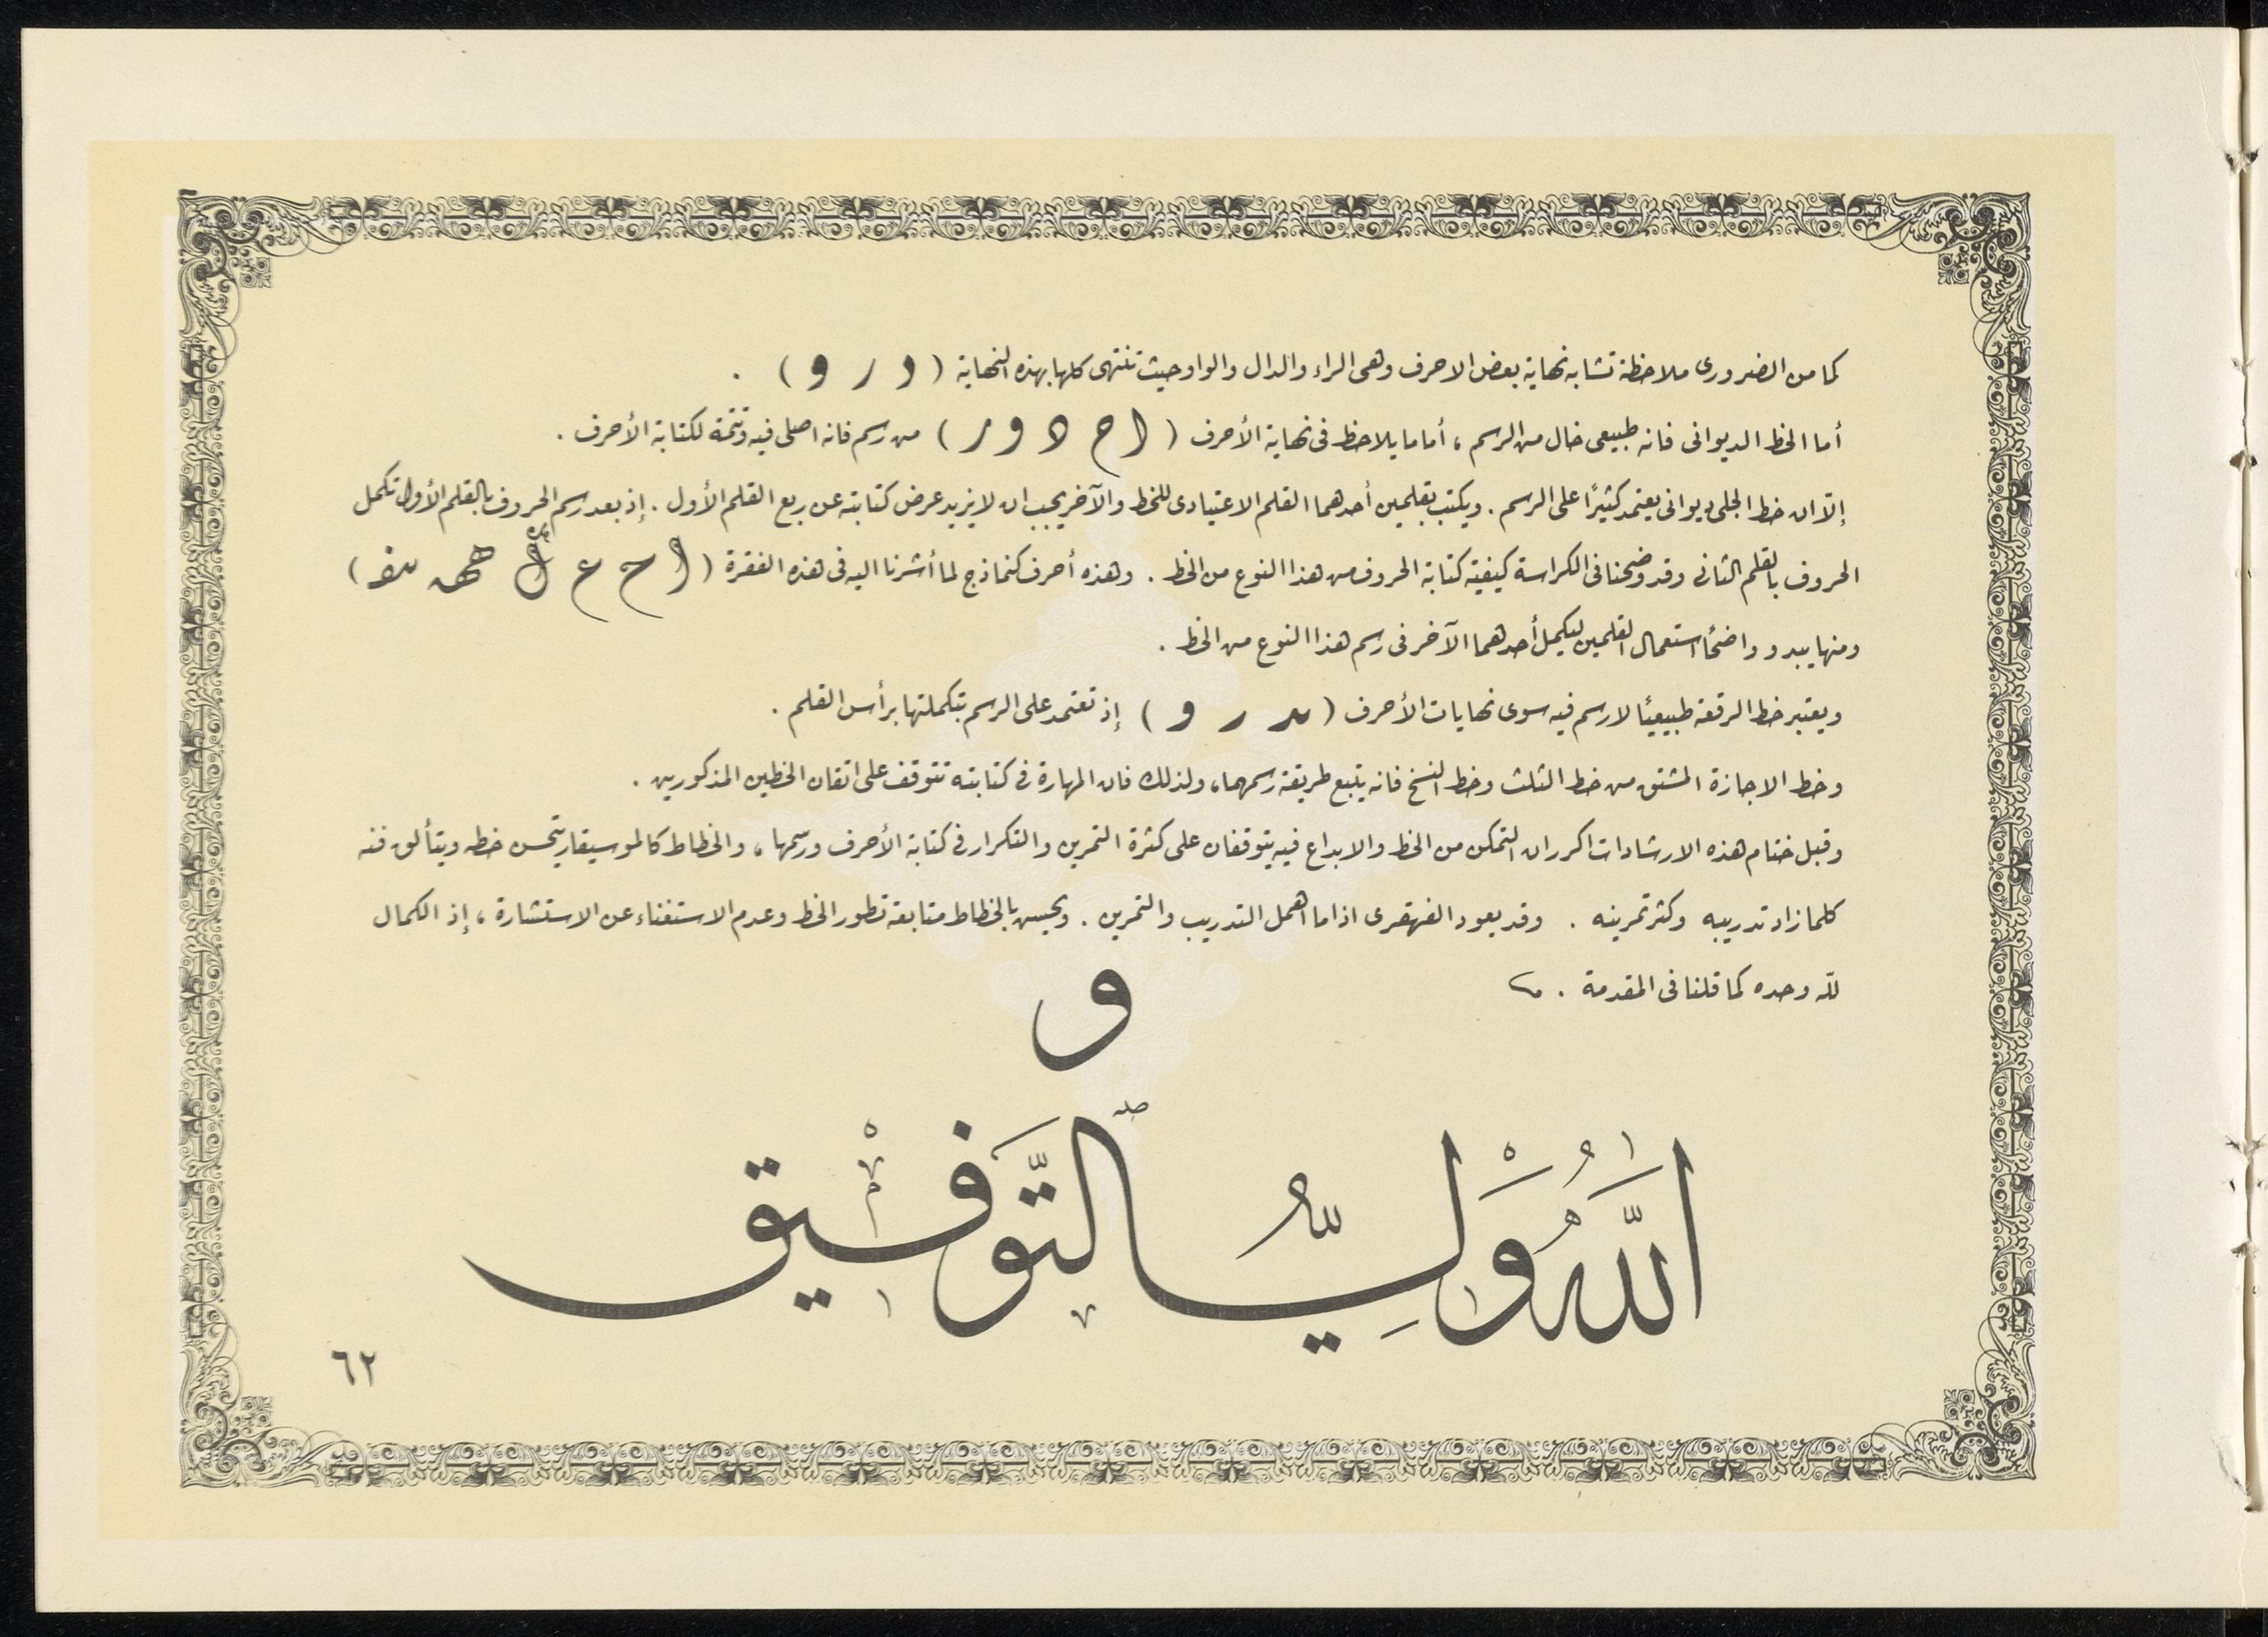 كما من الضرورى ملاحظة تشابه نهاية بعض الاحرف وهى الراء والدال والواو حيث تنتهى كلها بهذه النهاية ( د ر و ) .
أما الخط الديوانى فانه طبيعى خال من الرسم ، أما ما يلاحظ فى نهاية الأحرف ( ا ح د و ر ) من رسم فانه اصلى فيه وتتمة لكتابة الأحرف .
إلّا ان خط الجلى ديوانى يعتمد كثيرًا على الرسم . ويكتب بقلمين أحدهما القلم الاعتيادى للخط والآخر يجب ان لا يزيد عرض كتابته عن ربع القلم الأول . إذ بعد رسم الحروف بالقلم الأول تكمل
الحروف بالقلم الثانى وقد وضحنا فى الكراسة كيفية كتابة الحروف من هذا النوع من الخط . وهذه أحرف كنماذج لما أشرنا اليه فى هذه الفقرة ( ا ح ع ك هـ )
ومنها يبدو واضحًا استعمال القلمين ليكمل أحدهما الآخر فى رسم هذا النوع من الخط .
ويعتبر خط الرقعة طبيعيًا لا رسم فيه سوى نهايات الأحرف ( د ر و ) إذ تعتمد على الرسم بتكملتها برأس القلم .
وخط الاجازة المشتق من خط الثلث وخط النسخ فانه يتبع طريقة رسمهما ، ولذلك فان المهارة فى كتابته تتوقف على اتقان الخطين المذكورين .
وقبل ختام هذه الارشادات اكرر ان التمكن من الخط والابداع فيه يتوقفان على كثرة التمرين والتكرار فى كتابة الأحرف ورسمها ، والخطاط كالموسيقار يتحسن خطه ويتألق فنه
كلما زاد تدريبه وكثر تمرينه . وقد يعود القهقرى اذا ما اهمل التدريب والتمرين . ويحسن بالخطاط متابعة تطور الخط وعدم الاستغناء عن الاستشارة ، إذ الكمال
للّه وحده كما قلنا فى المقدمة .
و
اللَّهُ وَلِيُّ التَّوْفِيق
٦٢